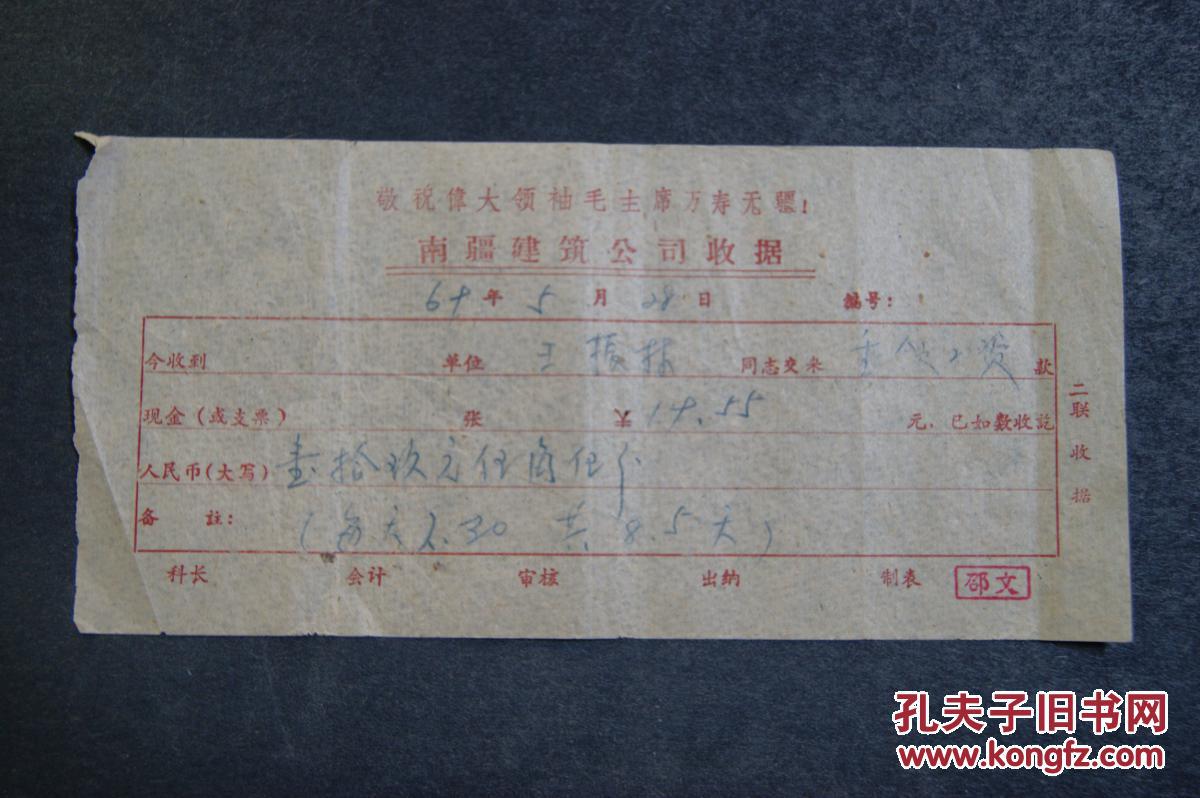 敬祝偉大领袖毛主席万寿无疆！
南疆建筑公司收据
69年5月28日 编号：
今收到 单位 王振林 同志交来 重领工资 款
现金（或支票） 张 19.55 元，已如数收訖
人民币（大写） 壹拾玖元伍角伍分
备 註： （每天2.30 共8.5天）
科长 会计 审核 出纳 制表 邵文
二联收据
孔夫子旧书网
www.kongfz.com